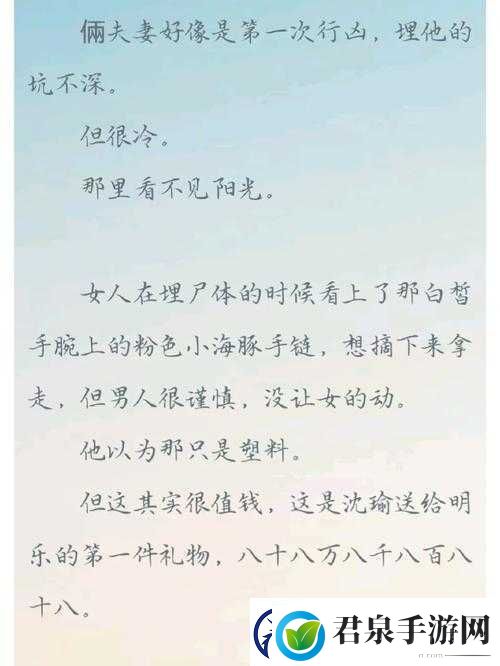 俩夫妻好像是第一次行凶，埋他的
坑不深。
但很冷。
那里看不见阳光。
女人在埋尸体的时候看上了那白皙
手腕上的粉色小海豚手链，想摘下来拿
走，但男人很谨慎，没让女的动。
他以为那只是塑料。
但这其实很值钱，这是沈瑜送给明
乐的第一件礼物，八十八万八千八百八
十八。
君泉手游网